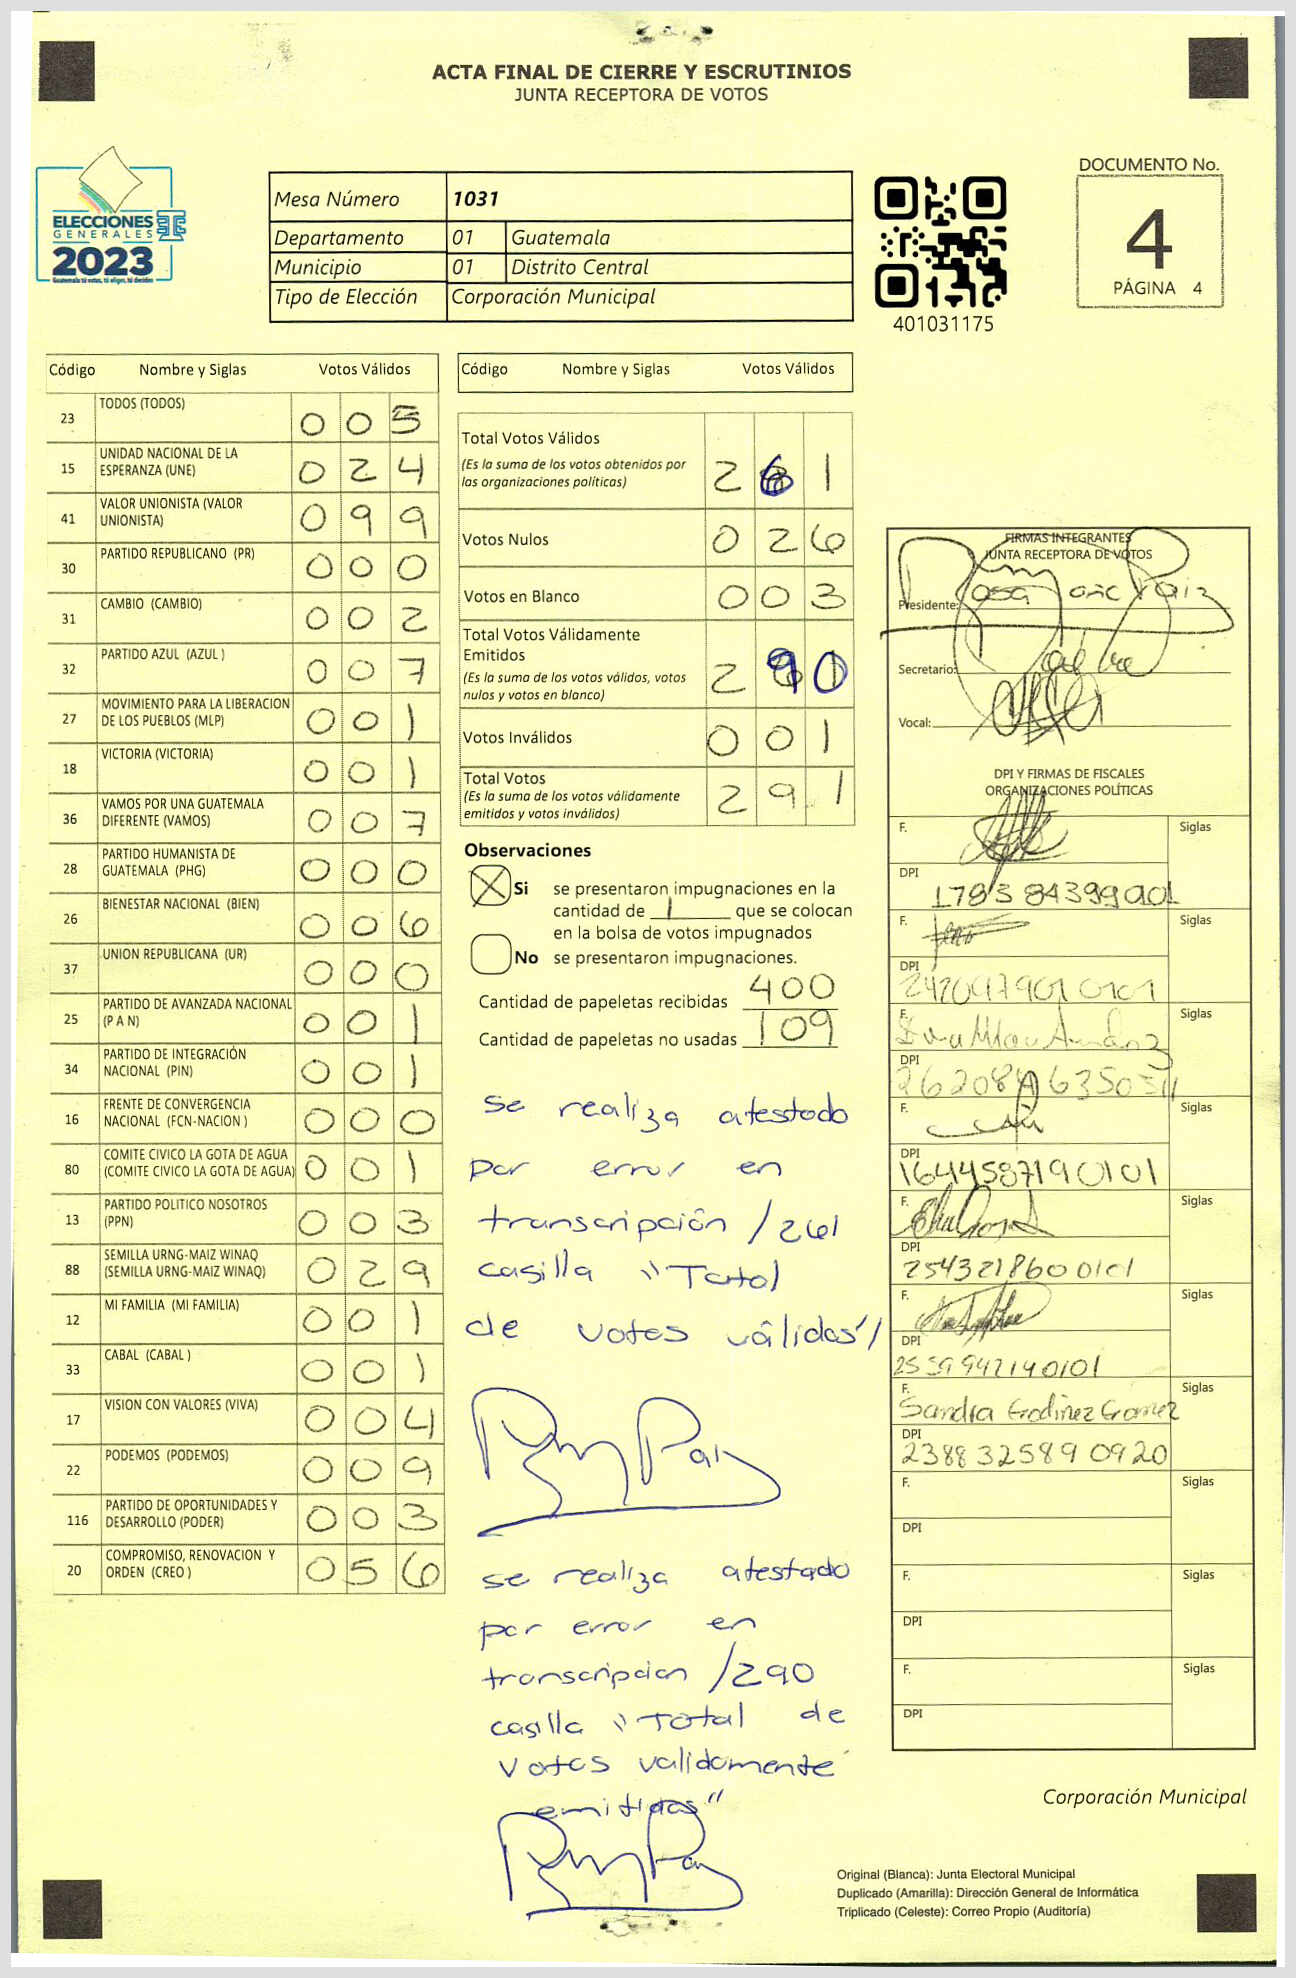 ACTA FINAL DE CIERRE Y ESCRUTINIOS
JUNTA RECEPTORA DE VOTOS
ELECCIONES
GENERALES
2023
Guatemala tú votas, tú eliges, tú decides
Mesa Número 1031
Departamento 01 Guatemala
Municipio 01 Distrito Central
Tipo de Elección Corporación Municipal
401031175
DOCUMENTO No.
4
PÁGINA 4
Código Nombre y Siglas Votos Válidos
23 TODOS (TODOS) 0 0 5
15 UNIDAD NACIONAL DE LA ESPERANZA (UNE) 0 2 4
41 VALOR UNIONISTA (VALOR UNIONISTA) 0 9 9
30 PARTIDO REPUBLICANO (PR) 0 0 0
31 CAMBIO (CAMBIO) 0 0 2
32 PARTIDO AZUL (AZUL ) 0 0 7
27 MOVIMIENTO PARA LA LIBERACION DE LOS PUEBLOS (MLP) 0 0 1
18 VICTORIA (VICTORIA) 0 0 1
36 VAMOS POR UNA GUATEMALA DIFERENTE (VAMOS) 0 0 7
28 PARTIDO HUMANISTA DE GUATEMALA (PHG) 0 0 0
26 BIENESTAR NACIONAL (BIEN) 0 0 6
37 UNION REPUBLICANA (UR) 0 0 0
25 PARTIDO DE AVANZADA NACIONAL (P A N) 0 0 1
34 PARTIDO DE INTEGRACIÓN NACIONAL (PIN) 0 0 1
16 FRENTE DE CONVERGENCIA NACIONAL (FCN-NACION ) 0 0 0
80 COMITE CIVICO LA GOTA DE AGUA (COMITE CIVICO LA GOTA DE AGUA) 0 0 1
13 PARTIDO POLITICO NOSOTROS (PPN) 0 0 3
88 SEMILLA URNG-MAIZ WINAQ (SEMILLA URNG-MAIZ WINAQ) 0 2 9
12 MI FAMILIA (MI FAMILIA) 0 0 1
33 CABAL (CABAL ) 0 0 1
17 VISION CON VALORES (VIVA) 0 0 4
22 PODEMOS (PODEMOS) 0 0 9
116 PARTIDO DE OPORTUNIDADES Y DESARROLLO (PODER) 0 0 3
20 COMPROMISO, RENOVACION Y ORDEN (CREO ) 0 5 6
Código Nombre y Siglas Votos Válidos
Total Votos Válidos 2 6 1
(Es la suma de los votos obtenidos por
las organizaciones políticas)
Votos Nulos 0 2 6
Votos en Blanco 0 0 3
Total Votos Válidamente
Emitidos 2 9 0
(Es la suma de los votos válidos, votos
nulos y votos en blanco)
Votos Inválidos 0 0 1
Total Votos 2 9 1
(Es la suma de los votos válidamente
emitidos y votos inválidos)
Observaciones
X Si se presentaron impugnaciones en la
cantidad de 1 que se colocan
en la bolsa de votos impugnados
No se presentaron impugnaciones.
Cantidad de papeletas recibidas 400
Cantidad de papeletas no usadas 109
se realiza atestado
por error en
transcripción /261
casilla "Total
de votos válidos"/
se realiza atestado
por error en
transcripcion /290
casilla "Total de
votos validamente
emitidos"
FIRMAS INTEGRANTES
JUNTA RECEPTORA DE VOTOS
Presidente:
Secretario:
Vocal:
DPI Y FIRMAS DE FISCALES
ORGANIZACIONES POLÍTICAS
F. Siglas
DPI
F. Siglas
DPI
F. Siglas
DPI
F. Siglas
DPI 1644587190101
F. Siglas
DPI 2543218600101
F. Siglas
DPI 2559942140101
F. Sandra Godinez Gomez Siglas
DPI 2388325890920
F. Siglas
DPI
F. Siglas
DPI
F. Siglas
DPI
Corporación Municipal
Original (Blanca): Junta Electoral Municipal
Duplicado (Amarilla): Dirección General de Informática
Triplicado (Celeste): Correo Propio (Auditoría)